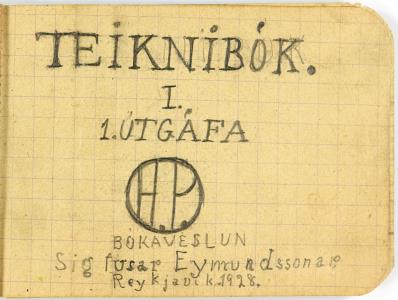 TEIKNIBÓK.
I.
1. ÚTGÁFA
H.P.
BÓKAVESLUN
Sigfúsar Eymundssonar
Reykjavík.1928.